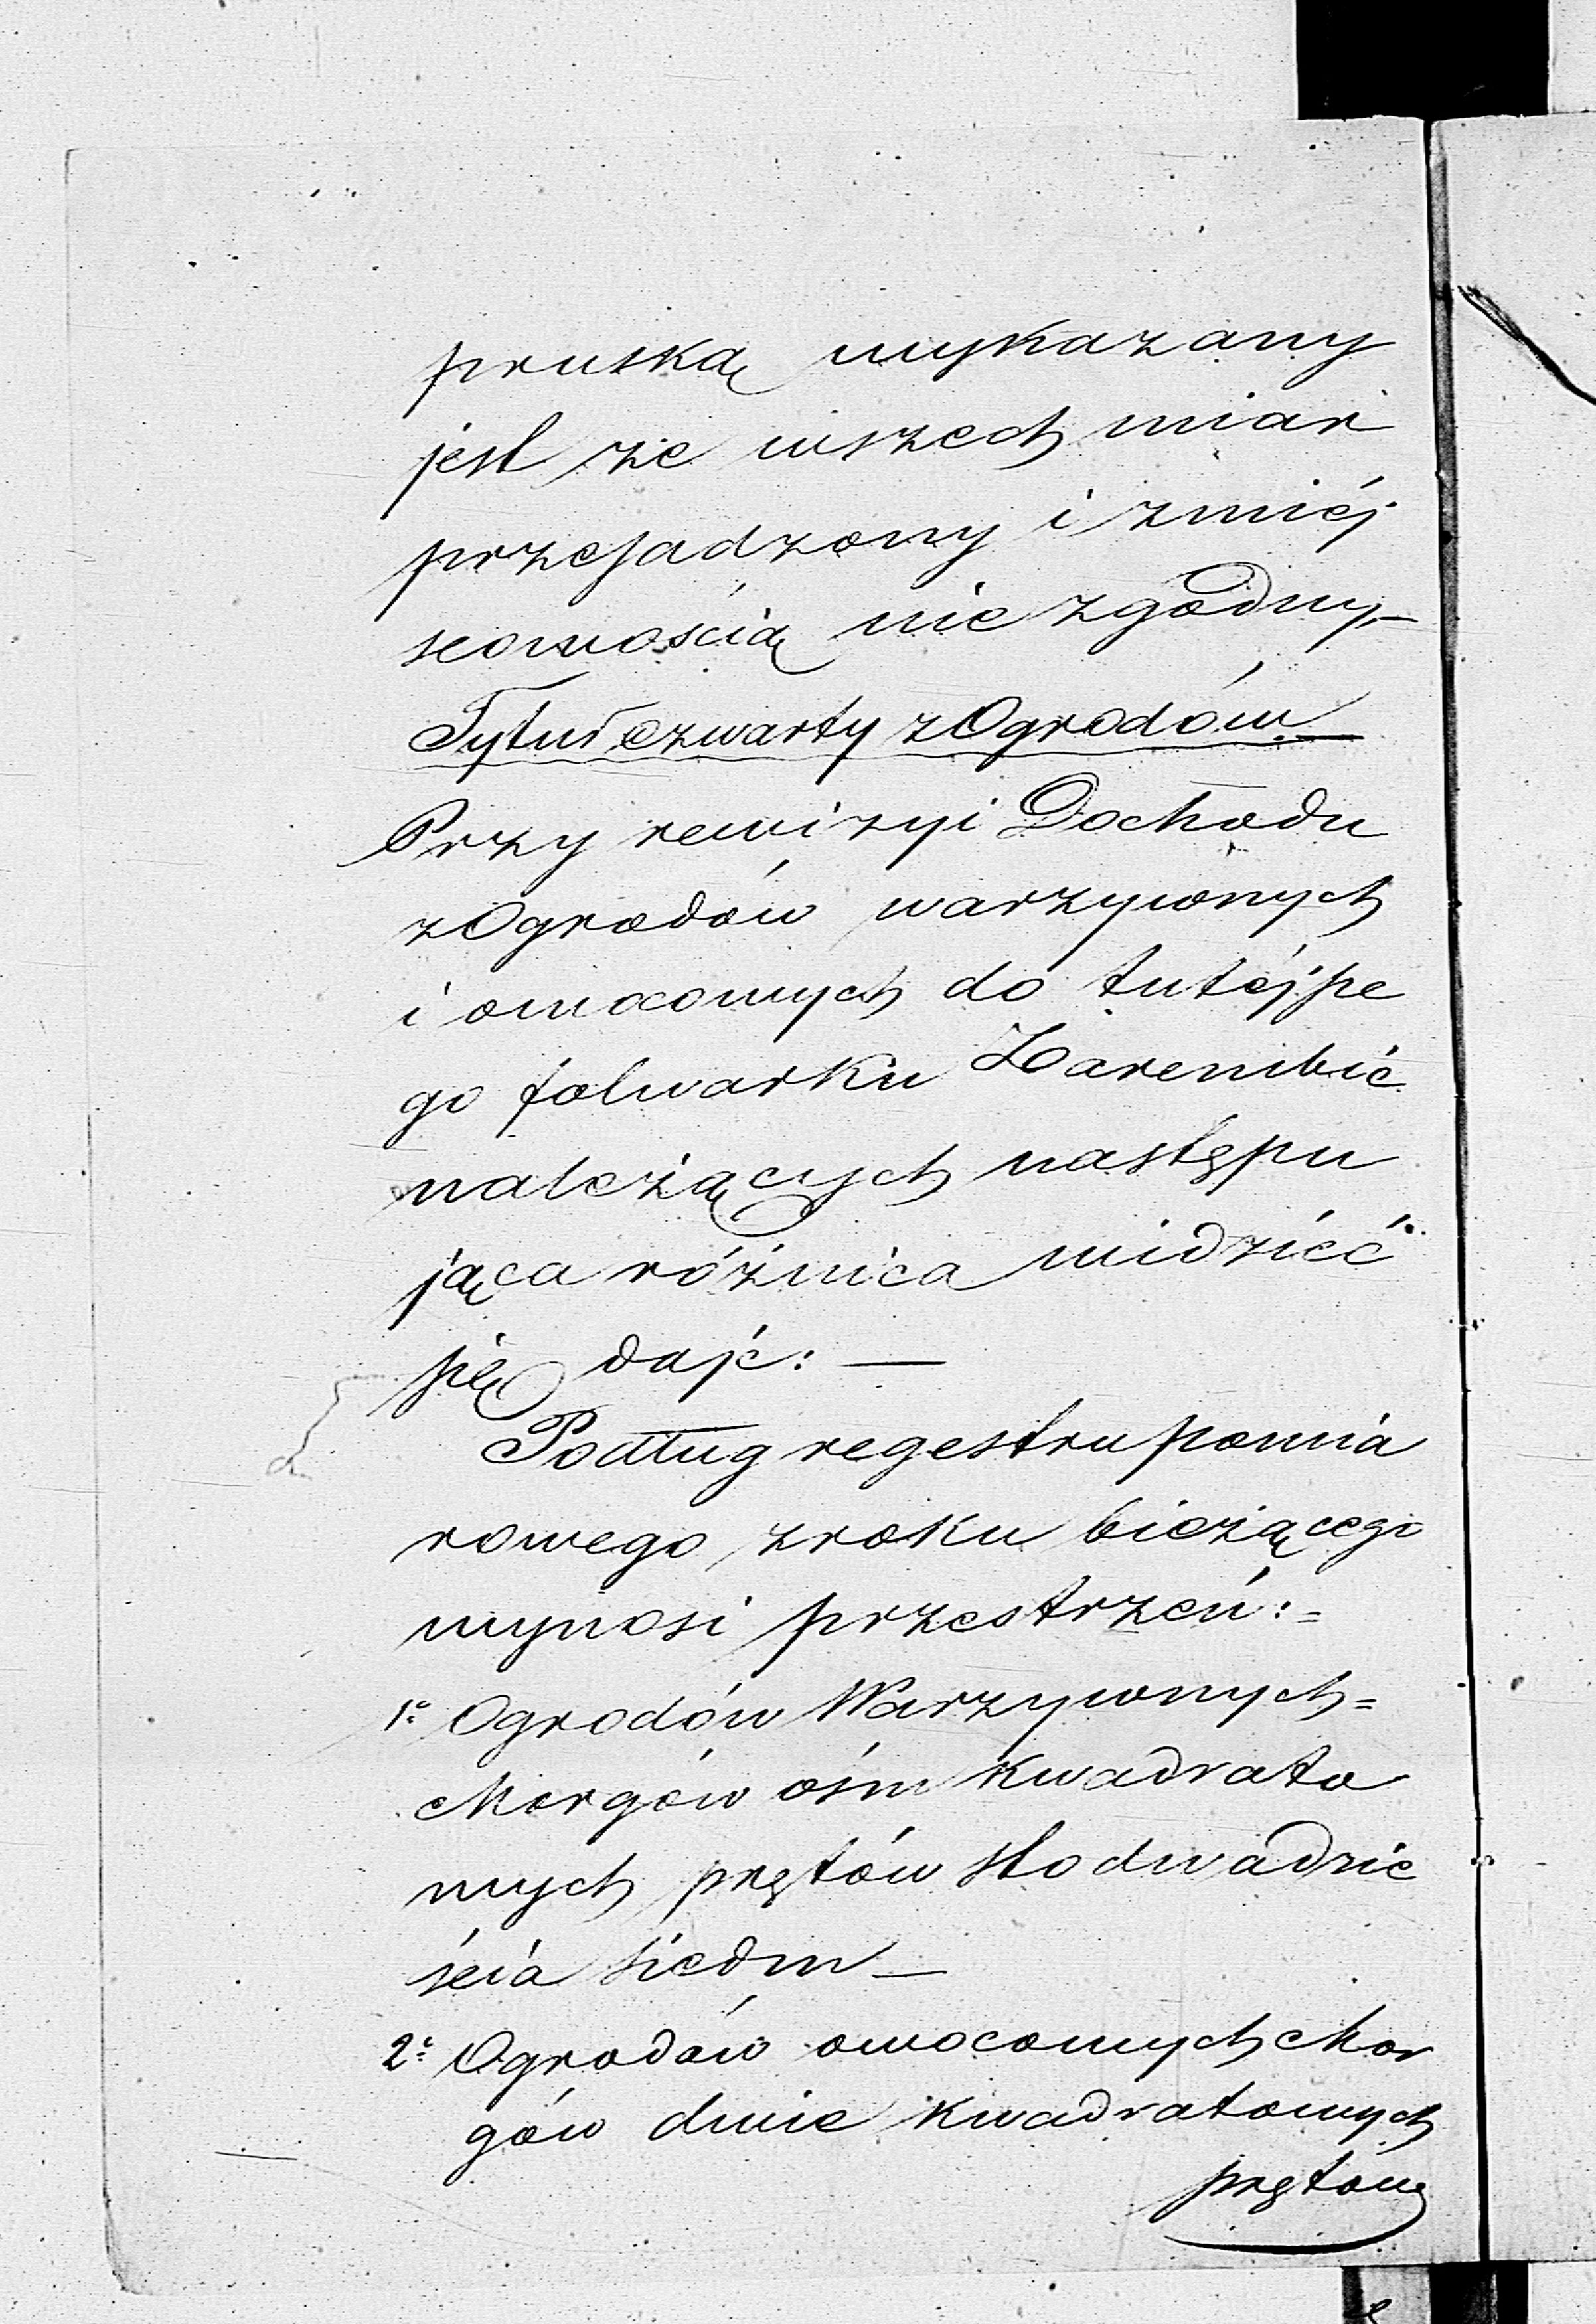 pruską wykazany
jest ze wszech miar
przesadzony i zmiéj
scowością nie zgodny,—
Tytuł czwarty z Ogrodów.—
Przy rewizyi Dochodu
z Ogrodów warzywnych
i owocowych do tutéjsze
go folwarku Zarembie
należących następu
jąca różnica widziéć
się daje: —
Podług regestru pomia
rowego z roku bieżącego
wynosi przestrzeń:=
1o Ogrodów Warzywnych=
Morgów ośm kwadrato
wych prętów sto dwadzie
ścia siedm —
2o Ogrodów owocowych Mor
gów dwie kwadratowych
prętów